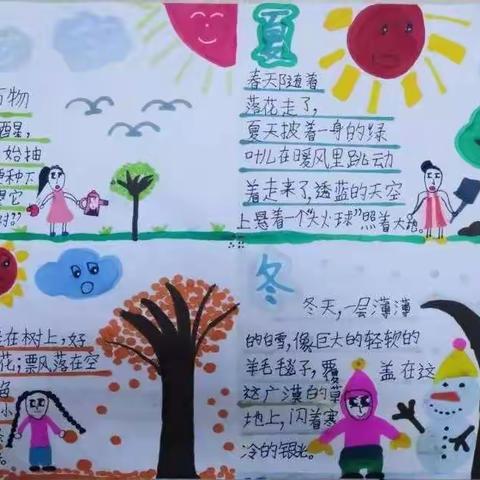 万物
始抽
种下
它
夏
春天随着
落花走了,
夏天披着一身的绿
叶儿在暖风里跳动
着走来了,透蓝的天空
上悬着一个"大火球"照着大地。
在树上,好
花;飘落在空
角
小
冬
冬天,一层薄薄
的白雪,像巨大的轻软的
羊毛毯子,覆盖在这
这广漠的
地上,闪着寒
冷的银光。